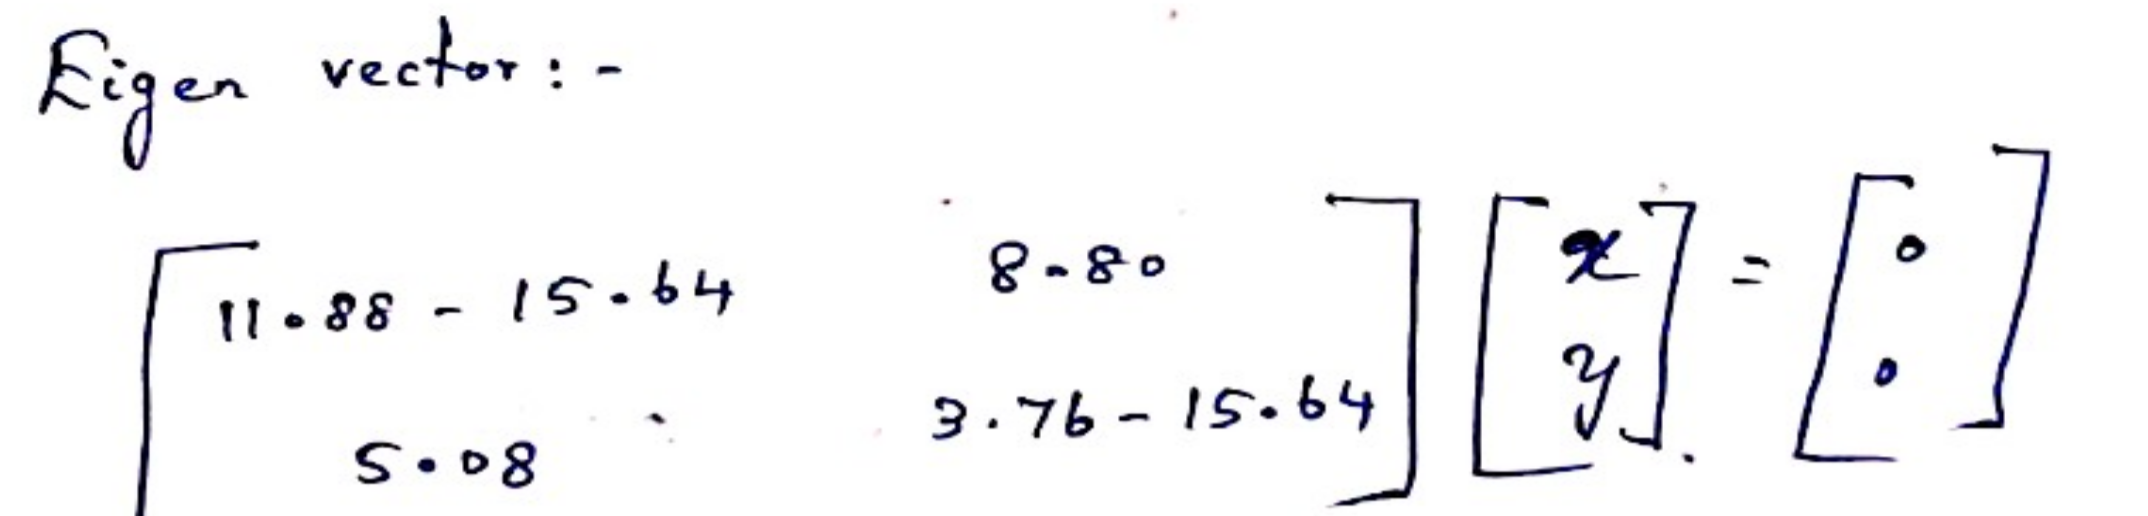 Eigen vector:-
[ 11.88 - 15.64 8.80 ] [ x ] = [ 0 ]
[ 5.08 3.76 - 15.64 ] [ y ] . [ 0 ]